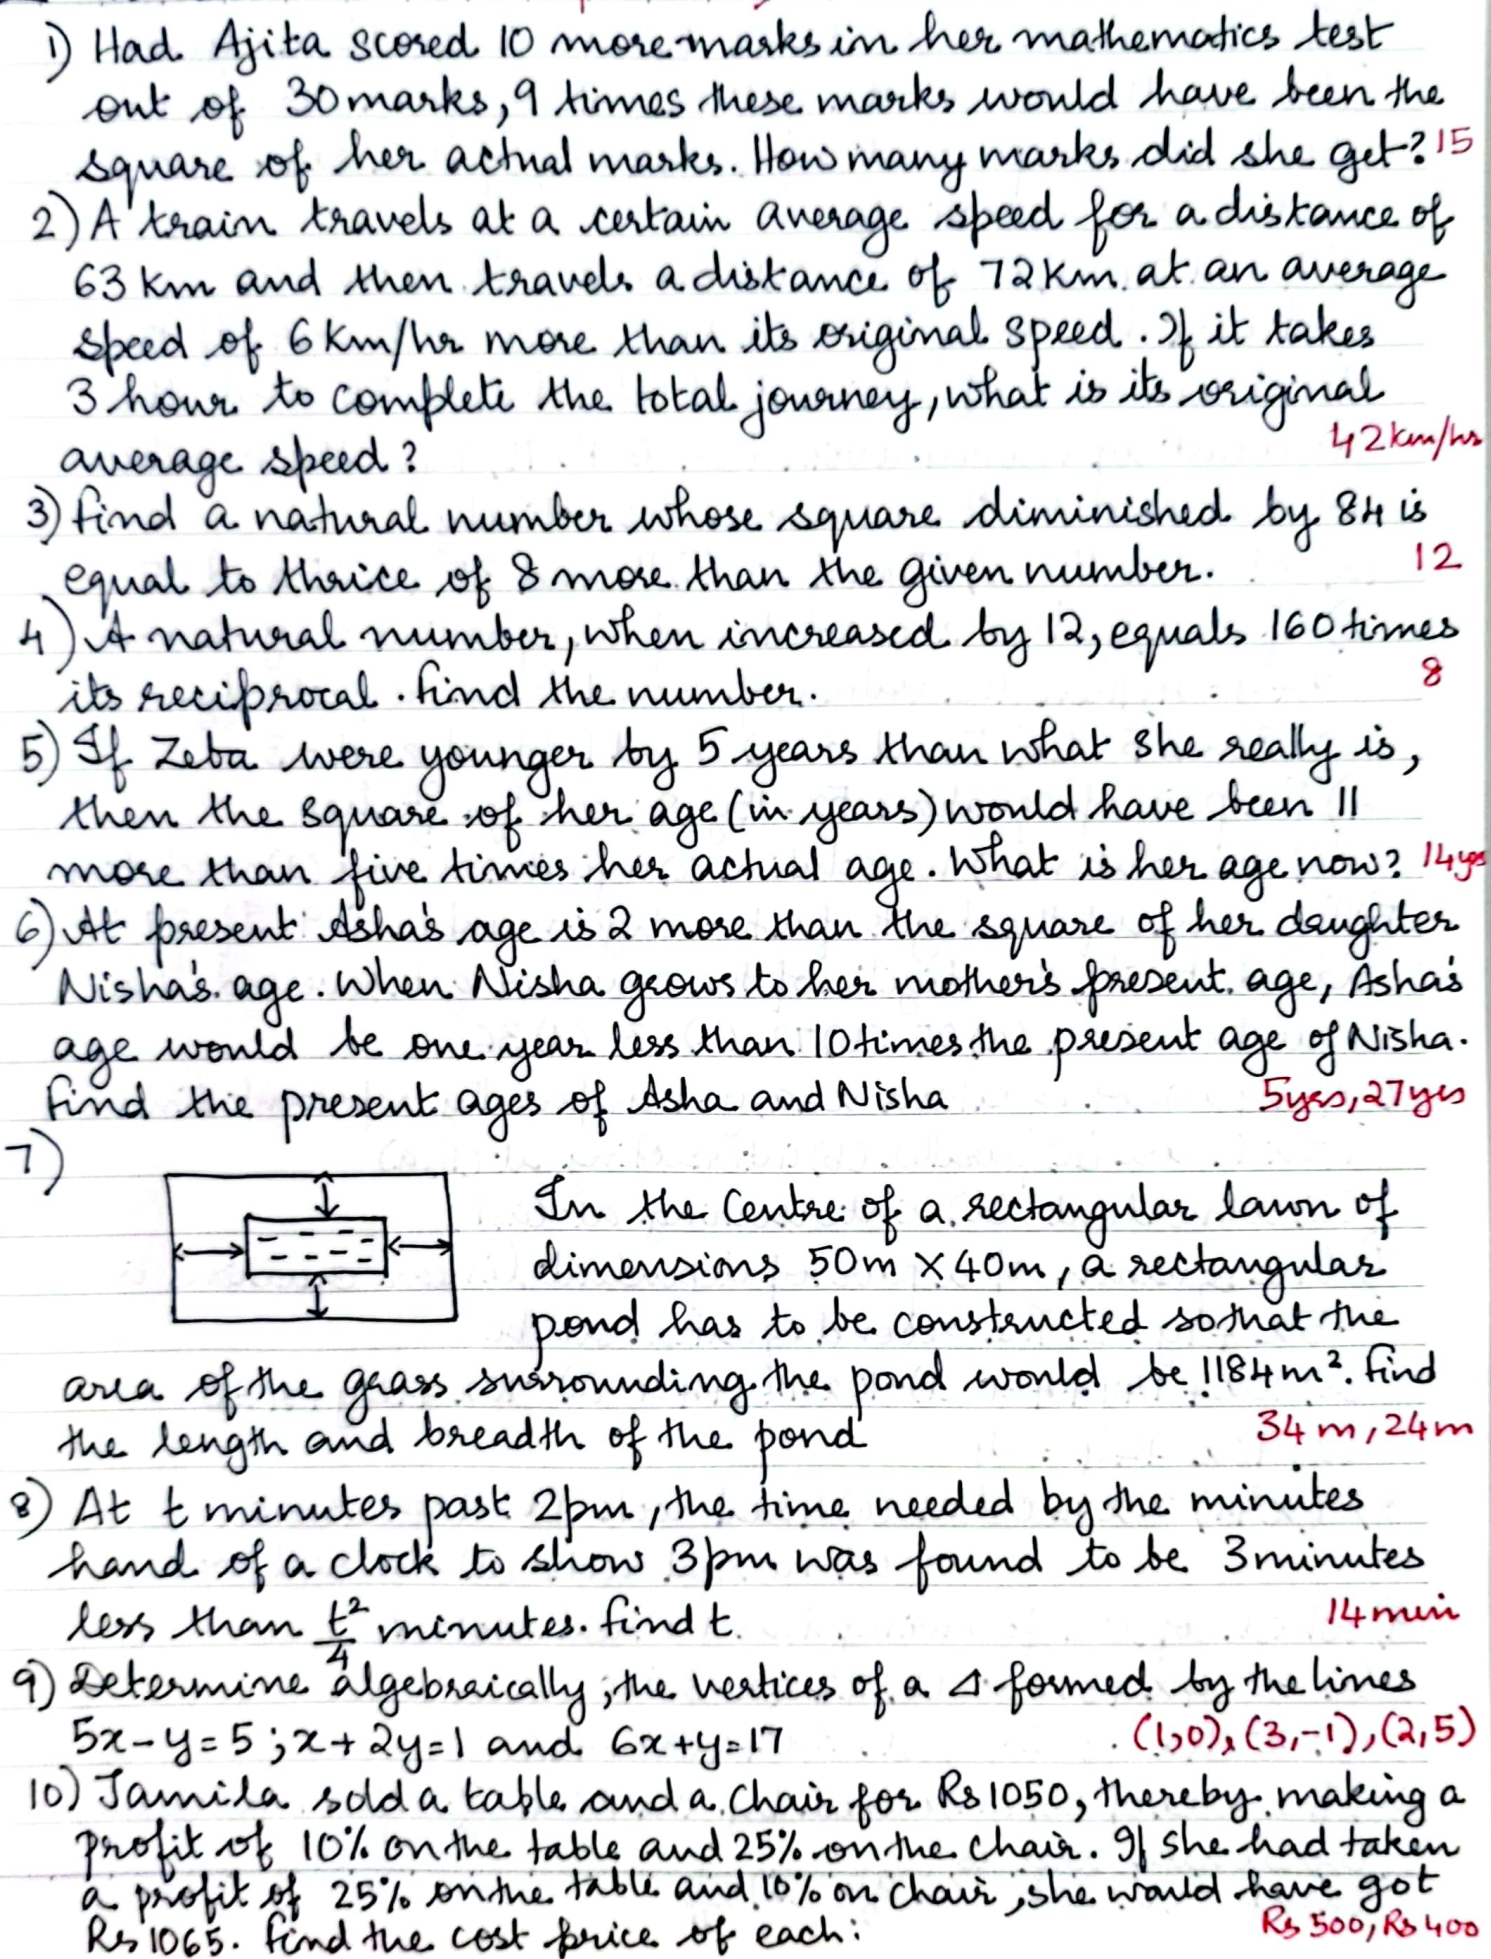 1) Had Ajita scored 10 more marks in her mathematics test
out of 30 marks, 9 times these marks would have been the
square of her actual marks. How many marks did she get? 15
2) A train travels at a certain average speed for a distance of
63 km and then travels a distance of 72 km at an average
speed of 6 km/hr more than its original speed. If it takes
3 hour to complete the total journey, what is its original
average speed? 42 km/hr
3) find a natural number whose square diminished by 84 is
equal to thrice of 8 more than the given number. 12
4) A natural number, when increased by 12, equals 160 times
its reciprocal. find the number. 8
5) If Zeba were younger by 5 years than what she really is,
then the square of her age (in years) would have been 11
more than five times her actual age. What is her age now? 14yrs
6) At present Asha's age is 2 more than the square of her daughter
Nisha's age. When Nisha grows to her mother's present age, Asha's
age would be one year less than 10 times the present age of Nisha.
find the present ages of Asha and Nisha 5yrs, 27yrs
7)
In the Centre of a rectangular lawn of
dimensions 50m × 40m, a rectangular
pond has to be constructed so that the
area of the grass surrounding the pond would be 1184 m². find
the length and breadth of the pond 34 m, 24 m
8) At t minutes past 2pm, the time needed by the minutes
hand of a clock to show 3pm was found to be 3 minutes
less than t²/4 minutes. find t. 14 min
9) Determine algebraically, the vertices of a Δ formed by the lines
5x-y=5; x+2y=1 and 6x+y=17 (1,0), (3,-1), (2,5)
10) Jamila sold a table and a chair for Rs 1050, thereby making a
profit of 10% on the table and 25% on the chair. If she had taken
a profit of 25% on the table and 10% on chair, she would have got
Rs 1065. find the cost price of each: Rs 500, Rs 400